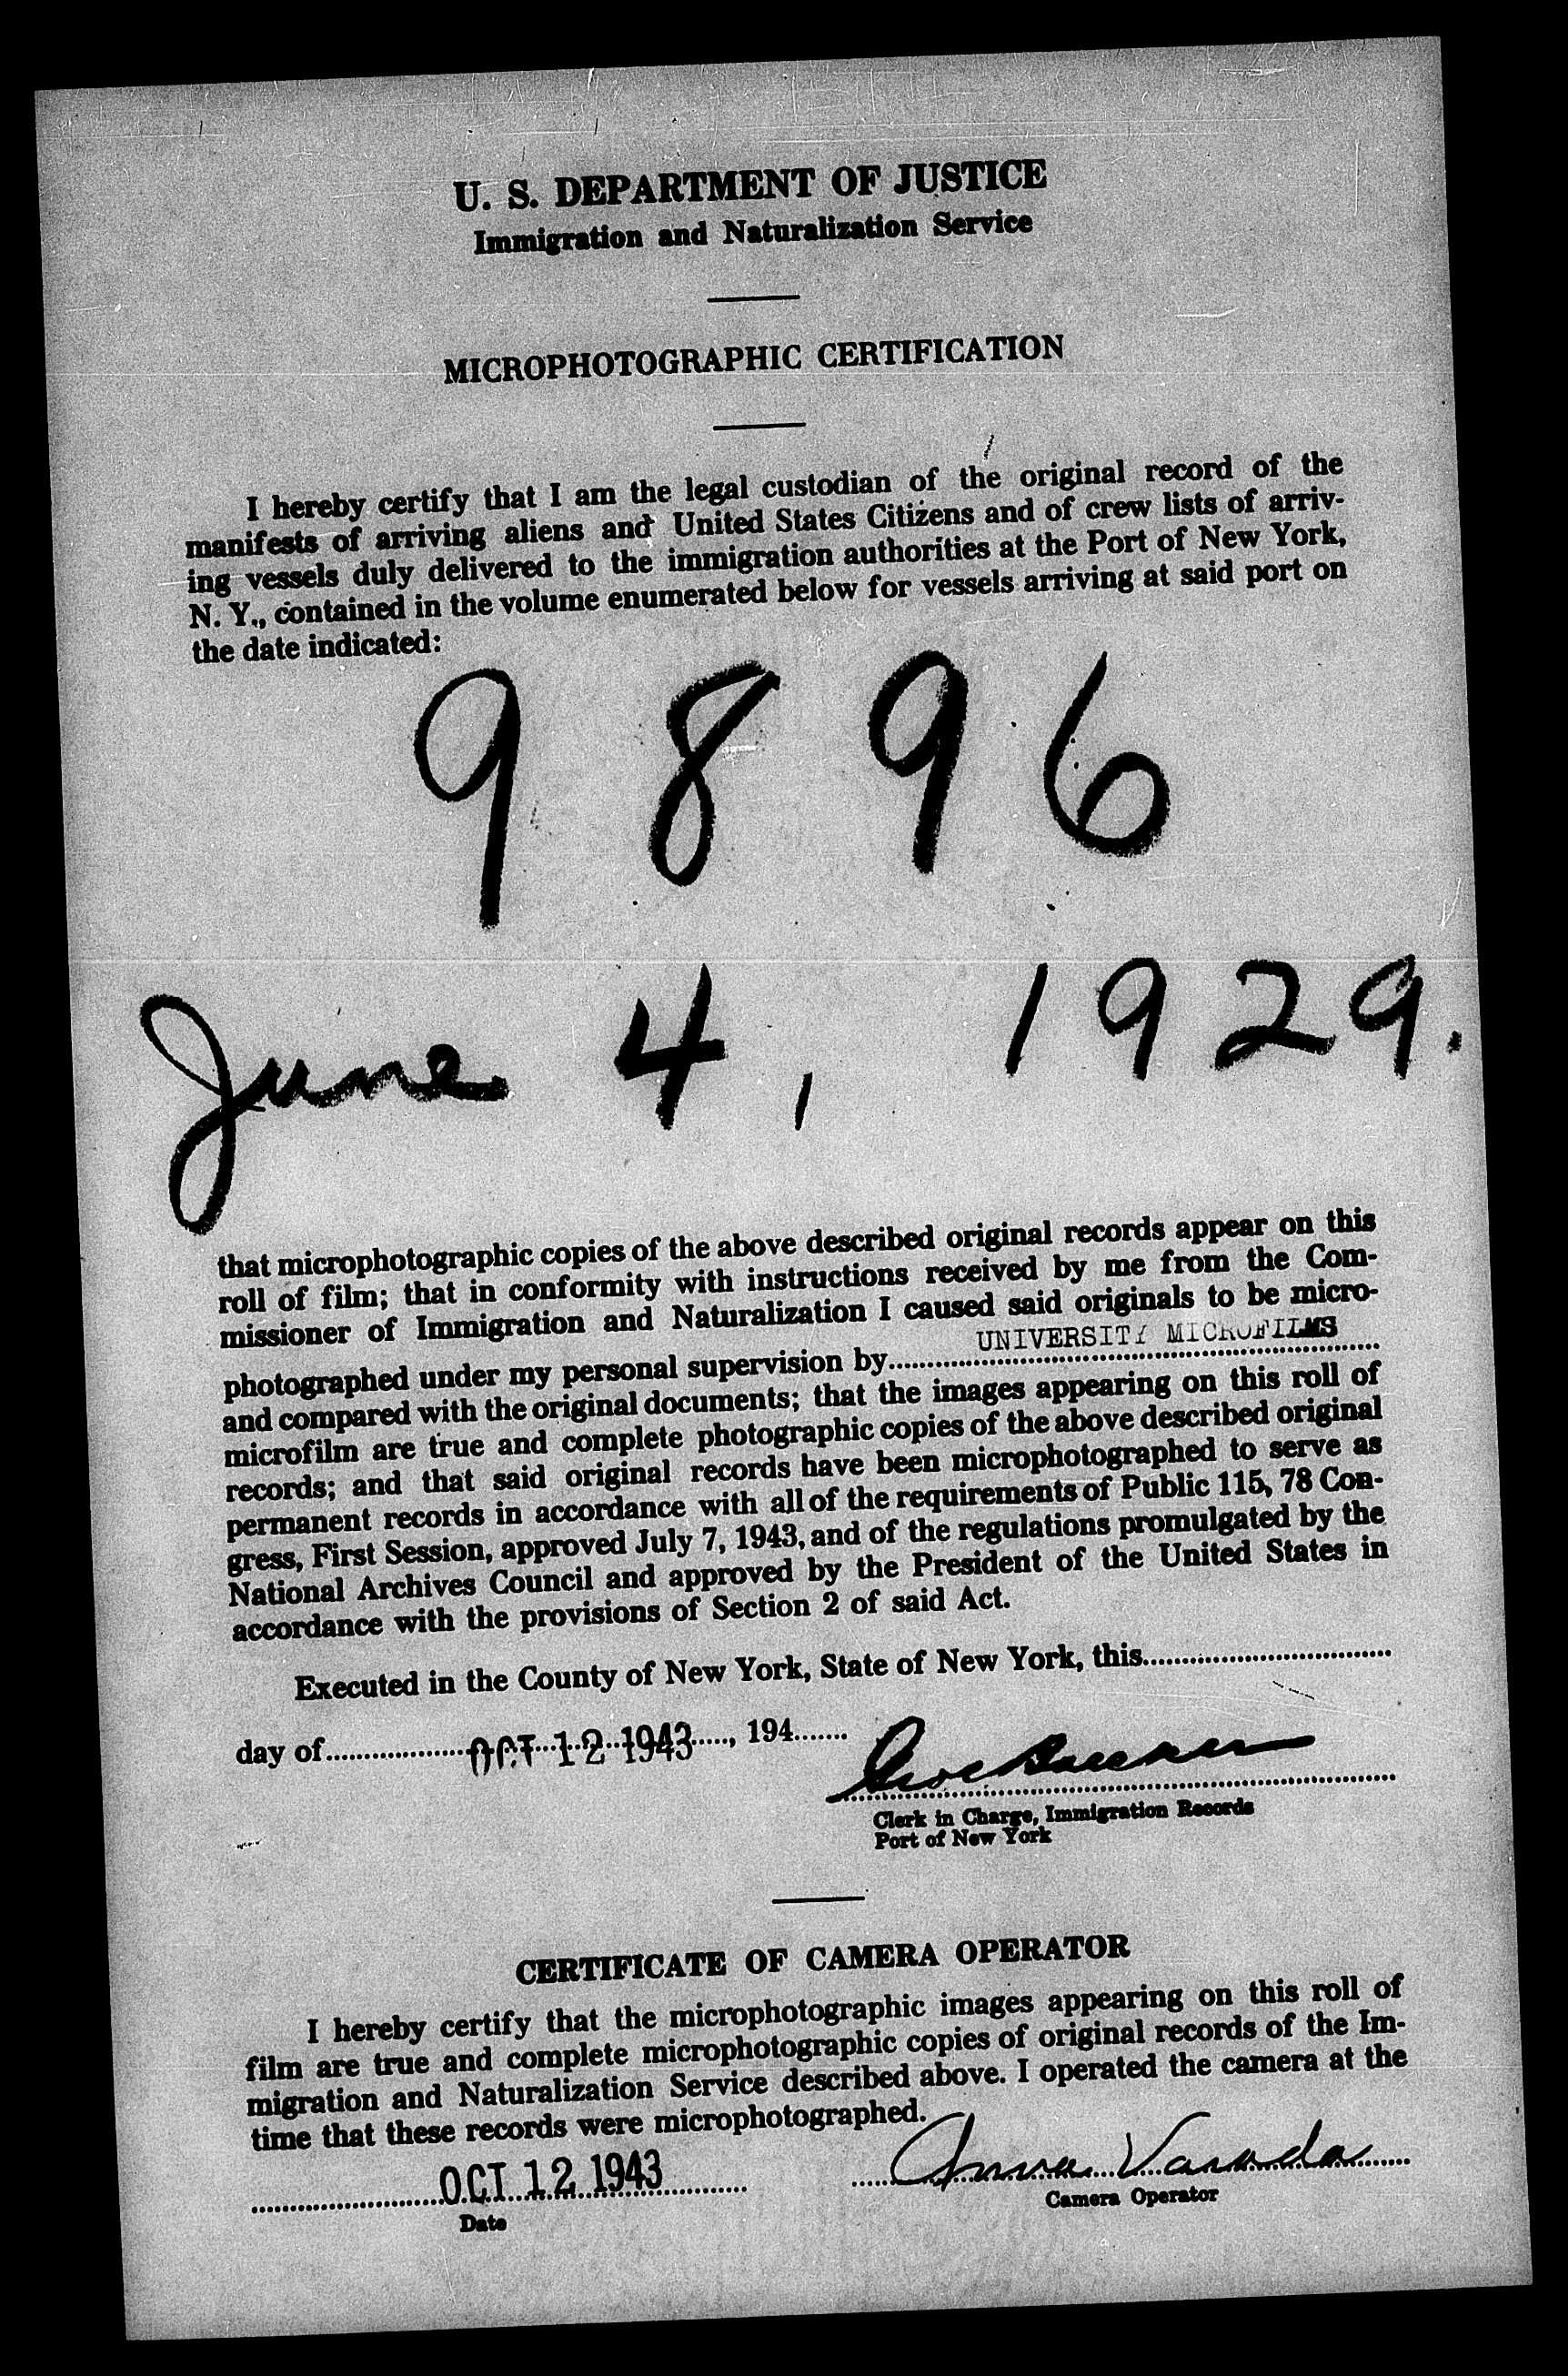 U. S. DEPARTMENT OF JUSTICE
Immigration and Naturalization Service
MICROPHOTOGRAPHIC CERTIFICATION
I hereby certify that I am the legal custodian of the original record of the
manifests of arriving aliens and United States Citizens and of crew lists of arriv-
ing vessels duly delivered to the immigration authorities at the Port of New York,
N. Y., contained in the volume enumerated below for vessels arriving at said port on
the date indicated:
9896
June 4, 1929.
that microphotographic copies of the above described original records appear on this
roll of film; that in conformity with instructions received by me from the Com-
missioner of Immigration and Naturalization I caused said originals to be micro-
photographed under my personal supervision by UNIVERSITY MICROFILMS
and compared with the original documents; that the images appearing on this roll of
microfilm are true and complete photographic copies of the above described original
records; and that said original records have been microphotographed to serve as
permanent records in accordance with all of the requirements of Public 115, 78 Con-
gress, First Session, approved July 7, 1943, and of the regulations promulgated by the
National Archives Council and approved by the President of the United States in
accordance with the provisions of Section 2 of said Act.
Executed in the County of New York, State of New York, this
day of OCT 12 1943, 194
Clerk in Charge, Immigration Records
Port of New York
CERTIFICATE OF CAMERA OPERATOR
I hereby certify that the microphotographic images appearing on this roll of
film are true and complete microphotographic copies of original records of the Im-
migration and Naturalization Service described above. I operated the camera at the
time that these records were microphotographed.
OCT 12 1943 Anna
Date Camera Operator